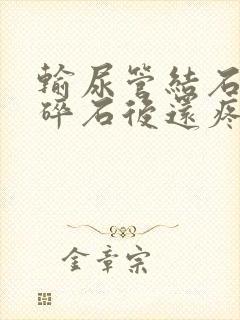 輸尿管結石
碎石後還疼
金章宗